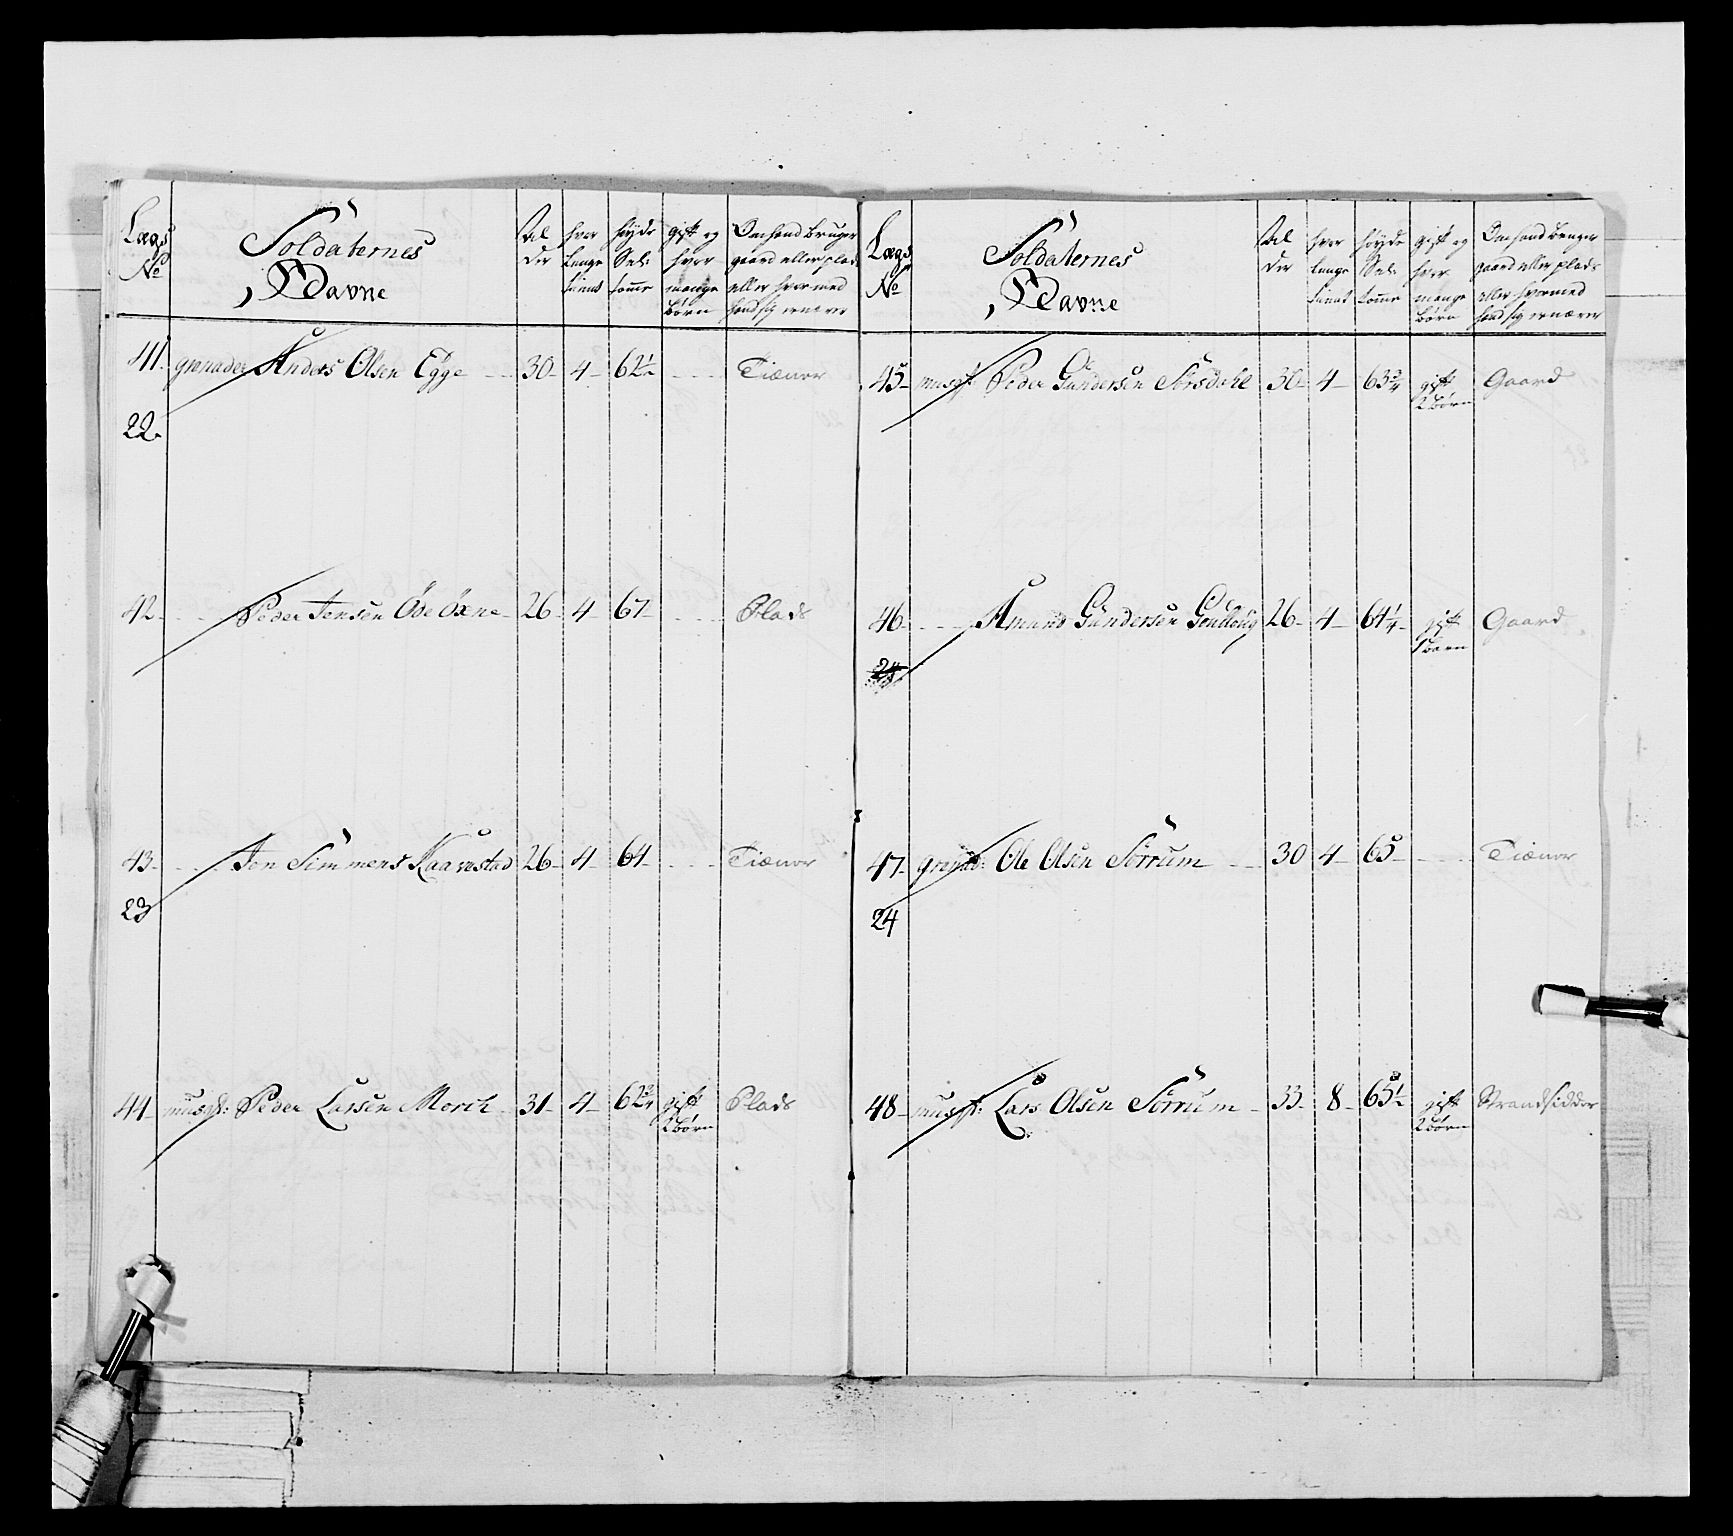 Lægs
No
Soldaternes
Navne
Al
der
hvor
længe
tient
høyde
Sel:
tomme
gift og
hvor
mange
børn
Om hand bruger
gaard eller plads
eller hvormed
hand sig ernærer
41. grenader Anders Olsen Egge 30 4 62½ Tiæner
22.
42 Peder Jensen Öde Öxne 26 4 67 Plads
43 Jon Simmens Kaarestad 26 4 64 Tiæner
23
44 musqt: Peder Larsen Morch 31 4 62¾ gift Plads
2 børn
Lægs
No
Soldaternes
Navne
Al
der
hvor
længe
tient
høyde
Sel:
tomme
gift og
hvor
mange
børn
Om hand bruger
gaard eller plads
eller hvormed
hand sig ernærer
45 musqt: Peder Gundersen Sörsdahl 30 4 63¾ gift Gaard
2 børn
46 Amund Gundersen 26 4 64¼ gift Gaard
1 barn
47 grenad: Ole Olsen Sörrum 30 4 65 Tiæner
24
48 musqt: Lars Olsen Sörrum 33 8 65½ gift Strandsidder
2 børn